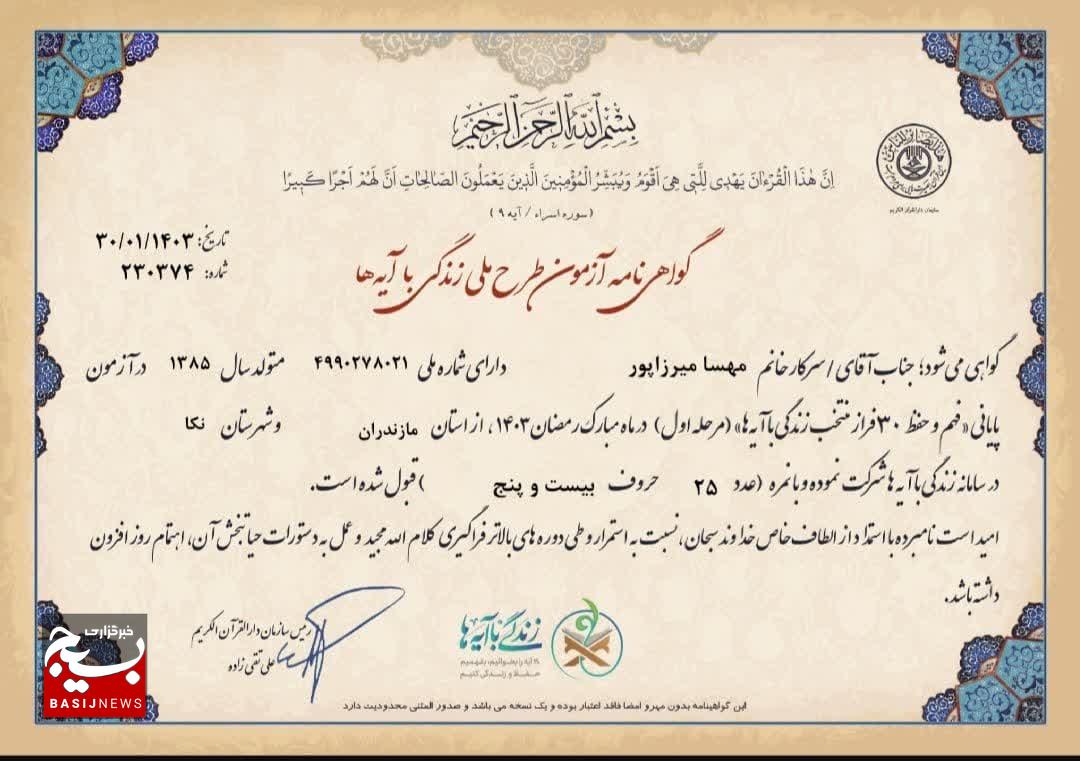 بسم الله الرحمن الرحیم
اِنَّ هٰذَا الْقُرْءَانَ يَهْدِى لِلَّتِى هِىَ اَقْوَمُ وَيُبَشِّرُ الْمُؤْمِنِينَ الَّذِينَ يَعْمَلُونَ الصّالِحاتِ اَنَّ لَهُمْ اَجْرًا كَبِيرًا
(سوره اسراء / آیه ۹)
سازمان دارالقرآن الکریم
تاریخ: ۳۰/۰۱/۱۴۰۳
شماره: ۲۳۰۳۷۴
گواهی نامه آزمون طرح ملی زندگی با آیه ها
گواهی می شود؛ جناب آقای / سرکار خانم مهسا میرزاپور دارای شماره ملی ۴۹۹۰۲۷۸۰۲۱ متولد سال ۱۳۸۵ در آزمون
پایانی «فهم و حفظ ۳۰ فراز منتخب زندگی با آیه ها» (مرحله اول) در ماه مبارک رمضان ۱۴۰۳، از استان مازندران و شهرستان نکا
در سامانه زندگی با آیه ها شرکت نموده و با نمره (عدد ۲۵ حروف بیست و پنج ) قبول شده است.
امید است نامبرده با استمداد از الطاف خاص خداوند سبحان، نسبت به استمرار و طی دوره های بالاتر فراگیری کلام الله مجید و عمل به دستورات حیاتبخش آن، اهتمام روز افزون
داشته باشد.
زندگی با آیه ها
آیه را بخوانیم، بفهمیم
حفظ و زندگی کنیم
رئیس سازمان دارالقرآن الکریم
علی تقی زاده
این گواهینامه بدون مهر و امضا فاقد اعتبار بوده و یک نسخه می باشد و صدور المثنی محدودیت دارد
خبرگزاری
بسیج
BASIJNEWS